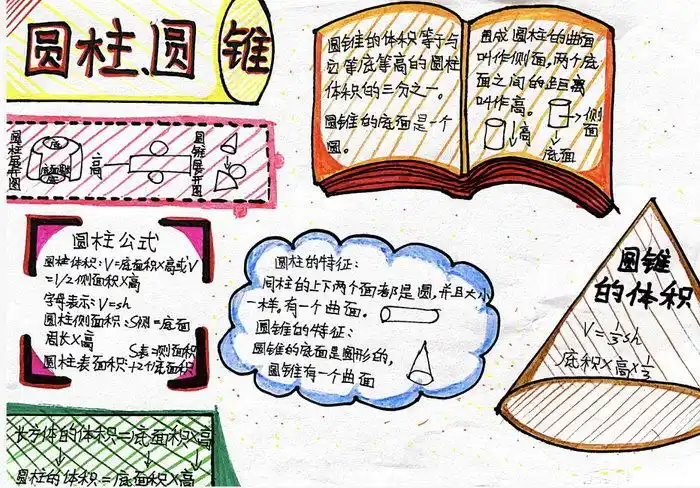 圆柱、圆锥
圆锥的体积等于与
它等底等高的圆柱
体积的三分之一。
圆锥的底面是一个
圆。
围成圆柱的曲面
叫作侧面,两个底
面之间的距离
叫作高。
侧面
高
底面
圆柱展开图
底
高
圆锥展开图
圆柱公式
圆柱体积:V=底面积×高或V
=1/2侧面积×高
字母表示:V=sh
圆柱侧面积:S侧=底面
周长×高
S表=侧面积
圆柱表面积:+2个底面积
圆柱的特征:
同柱的上下两个面都是圆,并且大小
一样。有一个曲面。
圆锥的特征:
圆锥的底面是圆形的,
圆锥有一个曲面
圆锥
的体积
V=1/3sh
底积×高×1/3
长方体的体积=底面积×高
圆柱的体积=底面积×高